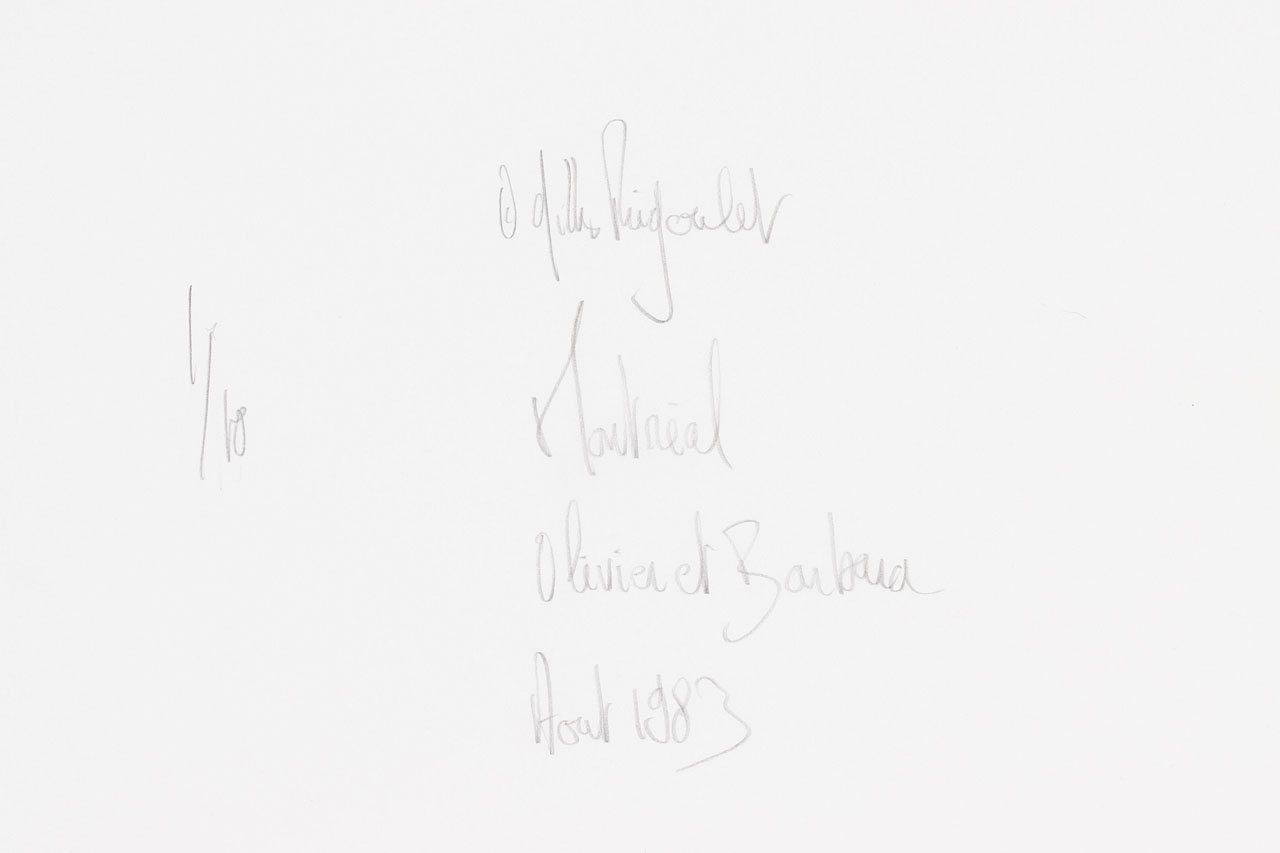 © Gilles Rigoulet
1/18
Montréal
Olivier et Barbara
Aout 1983